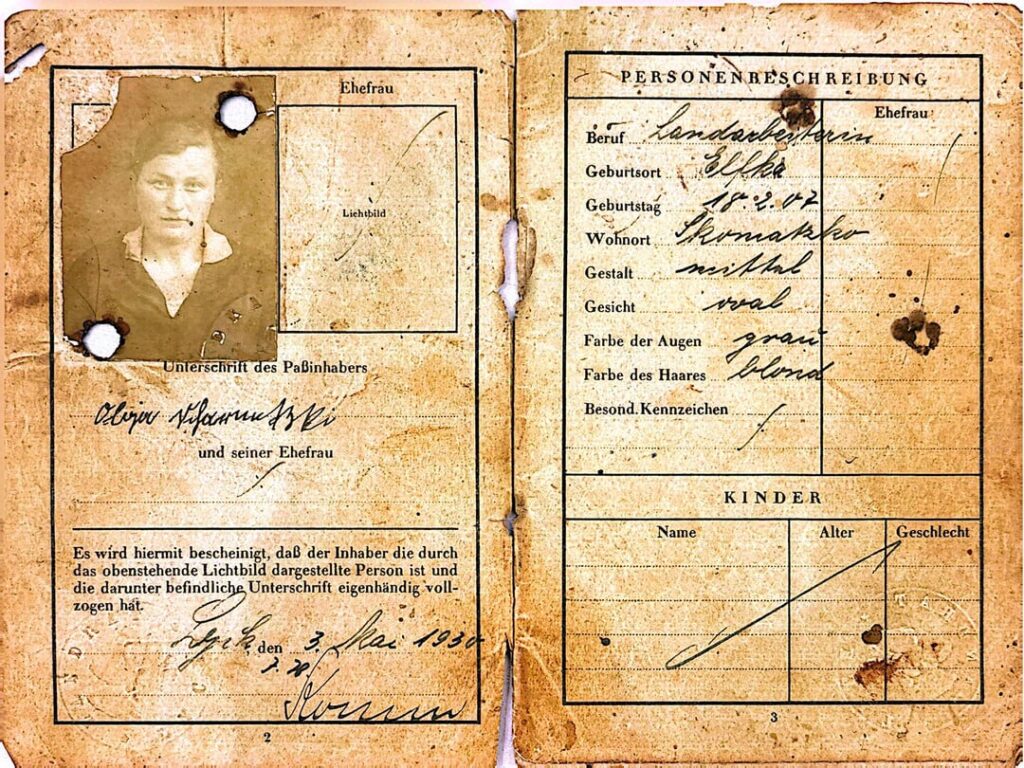 Ehefrau
Lichtbild
Unterschrift des Paßinhabers
Olga
und seiner Ehefrau
Es wird hiermit bescheinigt, daß der Inhaber die durch
das obenstehende Lichtbild dargestellte Person ist und
die darunter befindliche Unterschrift eigenhändig voll-
zogen hat.
Lyck, den 3. Mai 1930
2
PERSONENBESCHREIBUNG
Ehefrau
Beruf Landarbeiterin
Geburtsort Elfka
Geburtstag 18.2.07
Wohnort Skomatzko
Gestalt mittel
Gesicht oval
Farbe der Augen grau
Farbe des Haares blond
Besond. Kennzeichen
KINDER
Name Alter Geschlecht
3